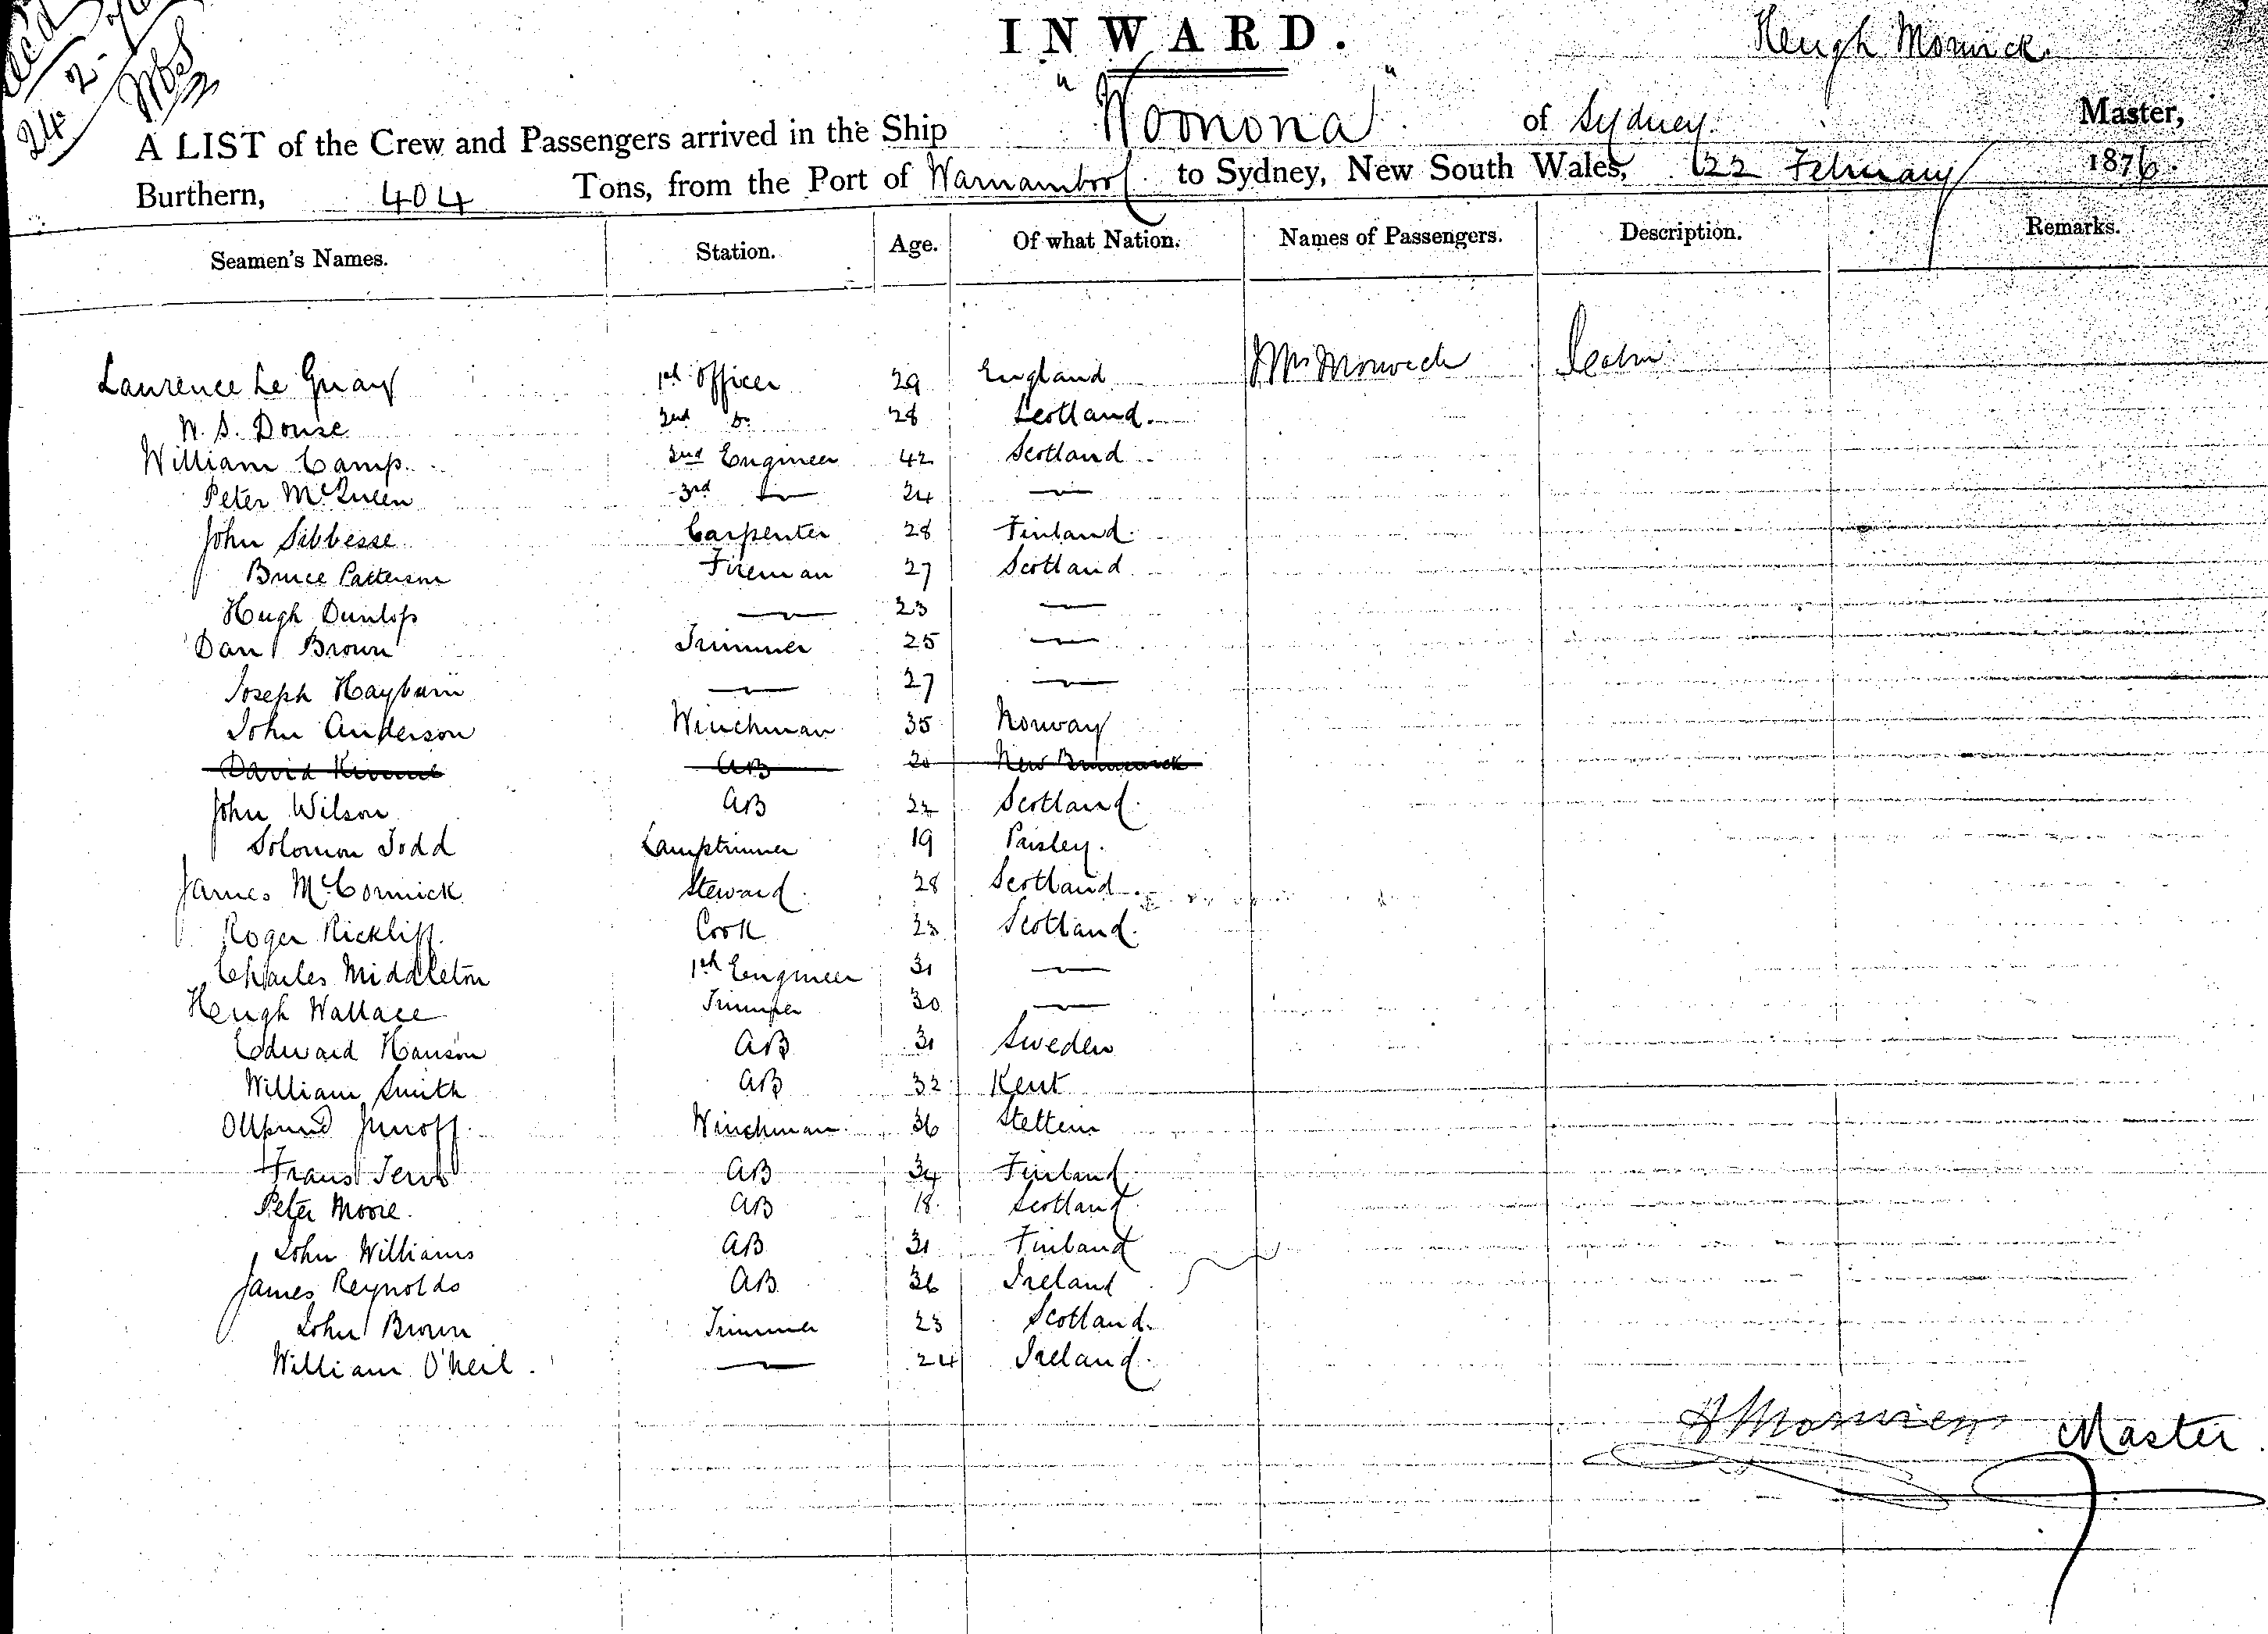 24 2
INWARD.
Hugh Morwick
A LIST of the Crew and Passengers arrived in the Ship "Womona" of Sydney. Master,
Burthern, 404 Tons, from the Port of Warnambool to Sydney, New South Wales, 22 February 1876.
Seamen's Names. Station. Age. Of what Nation. Names of Passengers. Description. Remarks.
Laurence Le Guay 1st Officer 29 England Mrs Morwick
W. S. Douse 2nd Do 28 Scotland.
William Camp. 2nd Engineer 42 Scotland
Peter McQueen 3rd — 24 —
John Sibbesse Carpenter 28 Finland.
Bruce Patterson Fireman 27 Scotland
Hugh Dunlop — 23 —
Dan Brown Trimmer 25 —
Joseph Hayburn — 27 —
John Anderson Winchman 35 Norway
David AB 20 New Brunswick
John Wilson AB 22 Scotland.
Solomon Todd Lamptrimmer 19 Paisley.
James McCormick Steward. 28 Scotland.
Roger Rickliff. Cook 23 Scotland.
Charles Middleton 1st Engineer 31 —
Hugh Wallace Trimmer 30 —
Edward Hanson AB 31 Sweden
William Smith AB 32 Kent
Winchman. 36 Stettin
Frans AB 34 Finland
Peter Moore. AB 18 Scotland.
John Williams AB 31 Finland
James Reynolds AB 36 Ireland
John Brown Trimmer 23 Scotland.
William O'Neil. — 24 Ireland.
H Morwick Master.